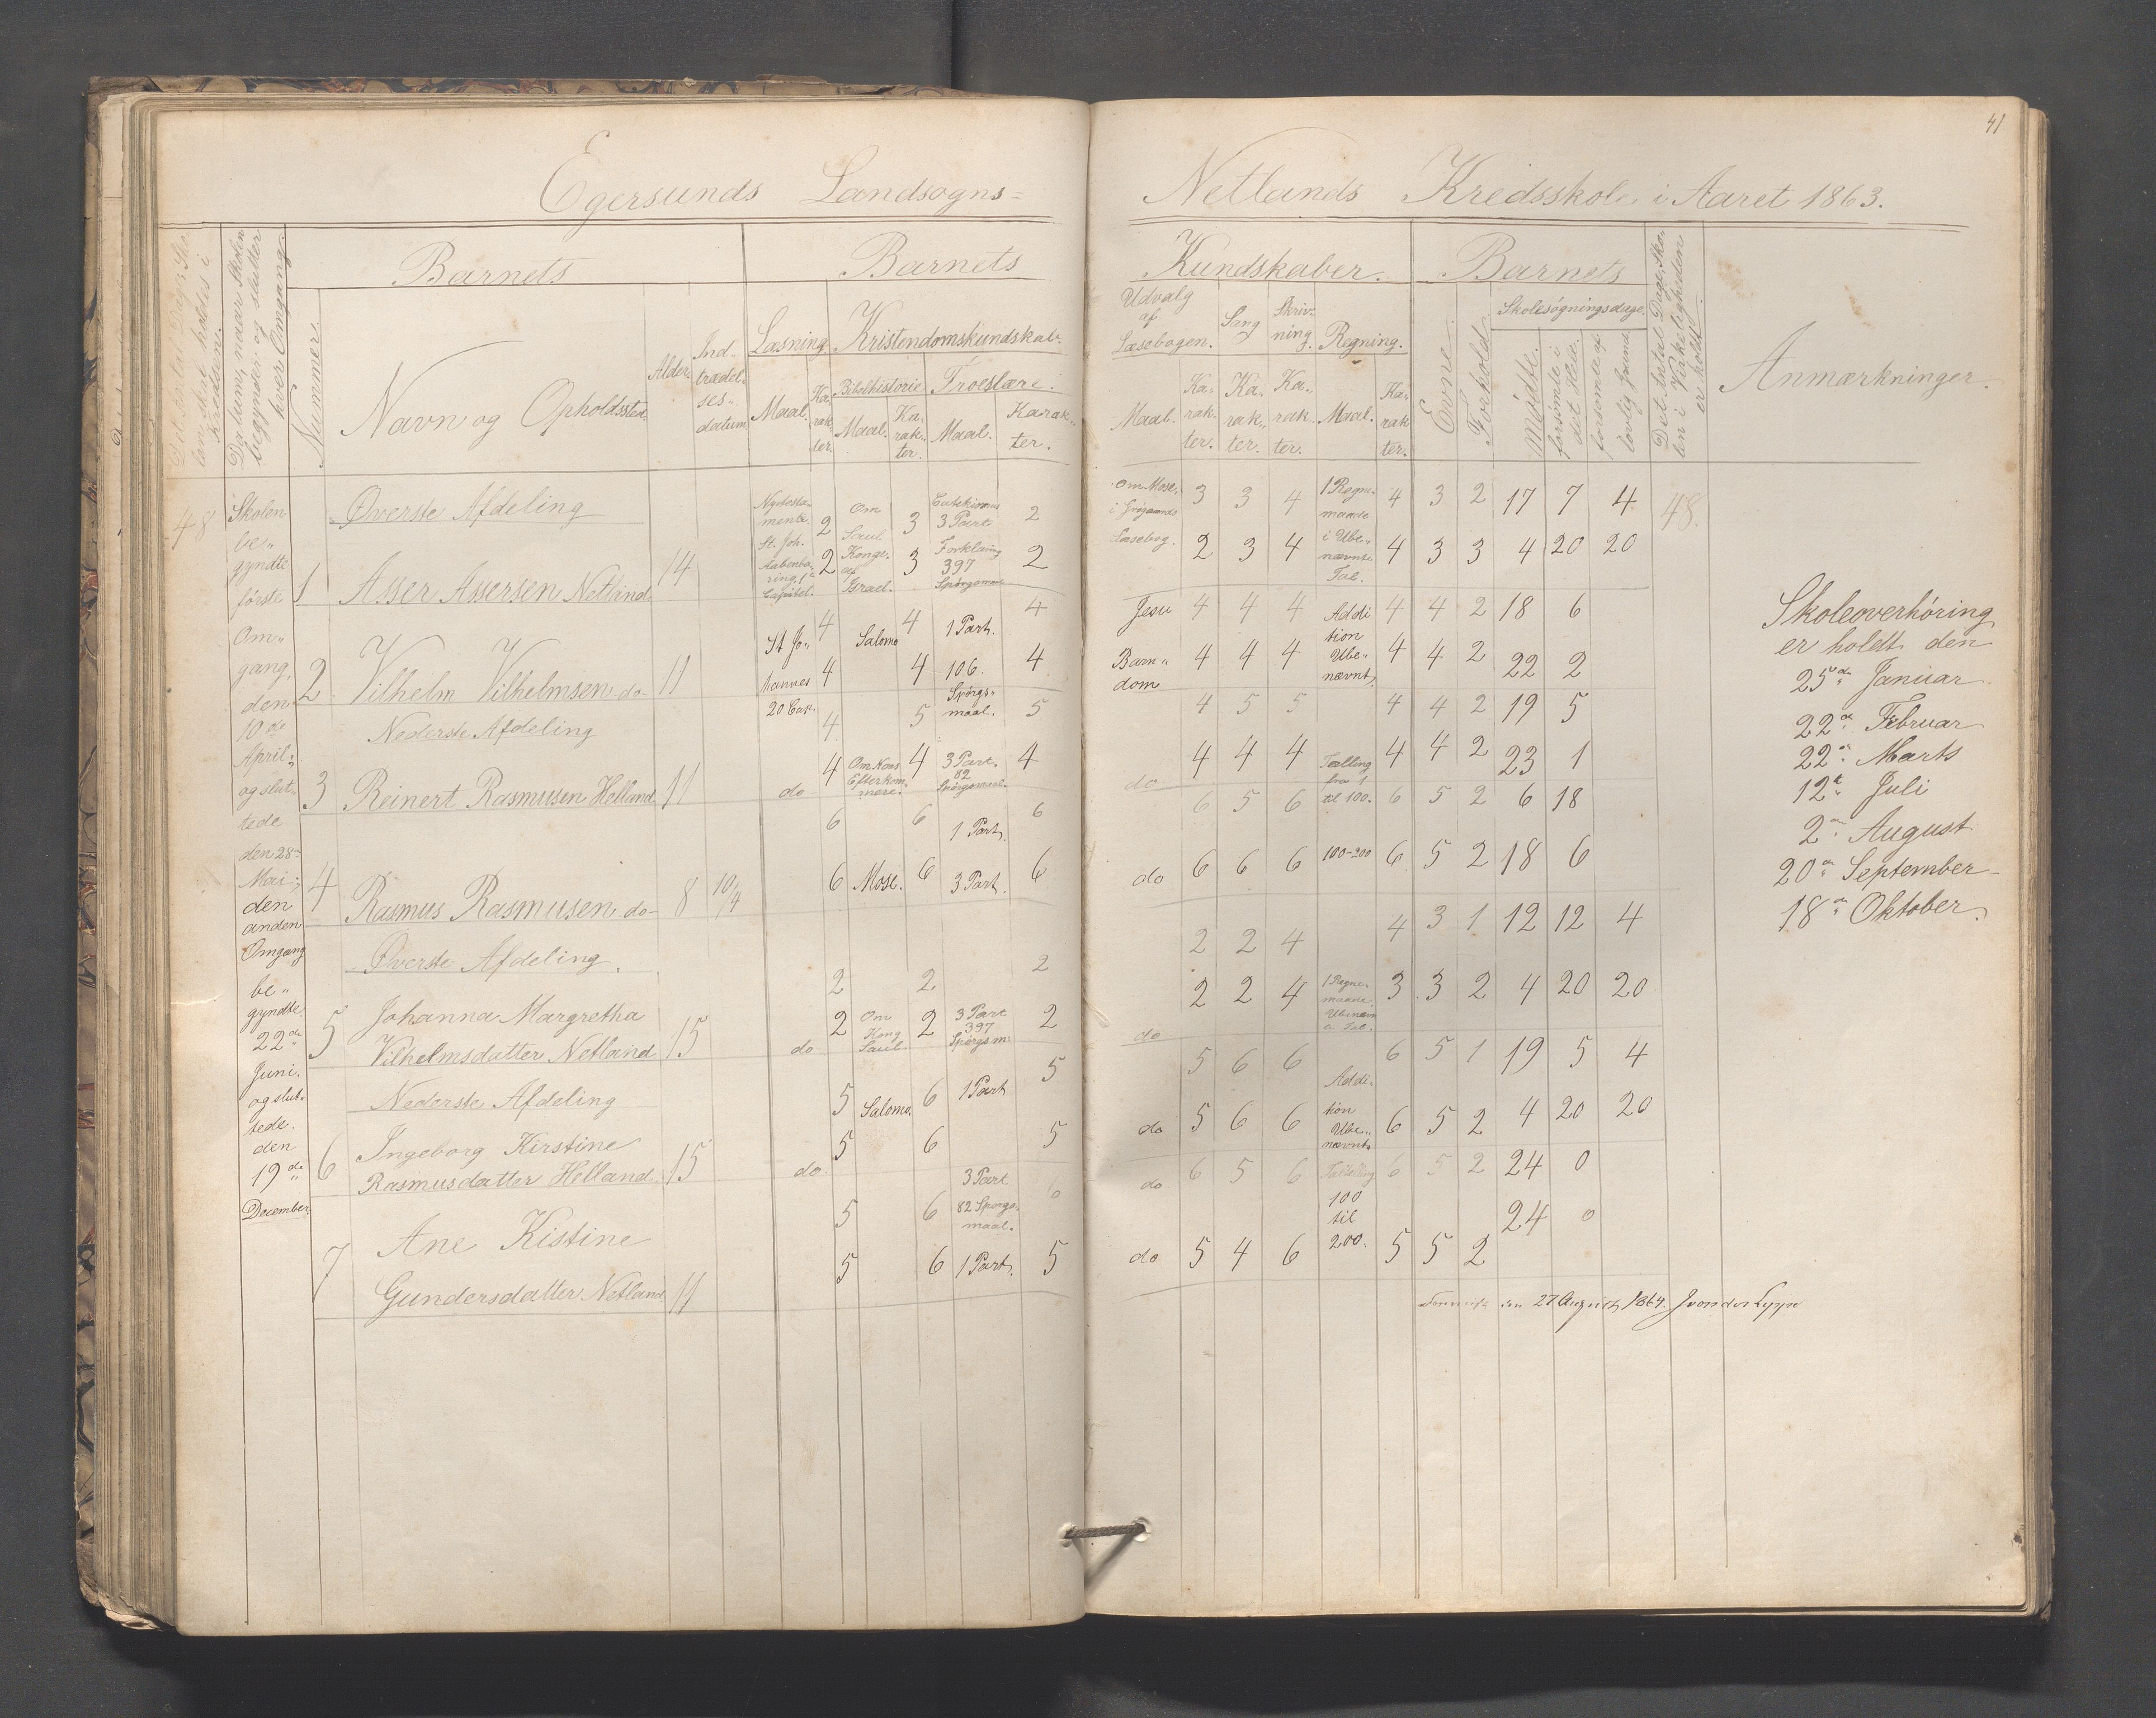 41
Egersunds Landsogns-
Netlands Kredsskole i Aaret 1863.
Datum, naar Skolen
begynder og slutter
hver Omgang.
Nummer.
Barnets
Navn og Opholdssted
Alder.
Ind-
trædel-
ses-
datum
Barnets
Læsning
Maal.
Ka-
rak-
ter.
Kristendomskundskab.
Bibelhistorie
Maal.
Ka-
rak-
ter.
Troeslære.
Maal.
Karak-
ter.
Kundskaber.
Udvalg
af
Læsebogen.
Maal.
Ka-
rak-
ter.
Sang
Ka-
rak-
ter.
Skriv-
ning.
Ka-
rak-
ter.
Regning.
Maal.
Ka-
rak-
ter.
Barnets
Evne.
Forhold.
Skolesøgningsdage.
Mødte.
forsømte i
det Hele.
forsømte af
lovlig Grund.
Det Antal Dage, Sko-
len i Virkeligheden
er holdt.
Anmærkninger.
48
Skolen
be-
gyndte
første
Om-
gang,
den
10de
April;
og slut-
tede
den 28-
Mai;
den
anden
Omgang
be-
gyndte
22de
Juni.
og slut-
tede.
den
19de
December.
Øverste Afdeling
1 Asser Assersen Netland 14
Nytesta-
mente.
St. Joh.
Aabenba-
ring, 1ste
Capitel.
2
2
Om
Saul
Konge
af
Israel.
3
3
Catekismus
3 Part.
Forklaring
397
Spørgsmaal
2
2
Om Mose,
Læsebog.
3 3 4 1 Regne-
maade
4 3 2 17 7 4 48.
2 3 4 i Ube-
nævnte
Tal.
4 3 3 4 20 20
2 Vilhelm Vilhelmsen do- 11
St Jo-
hannes
20 Cap.
4
4
Salomo
4
4
1 Part.
106.
Spørgs-
maal.
4
4
Jesu
Barn-
dom
4 4 4 Addi
tion
Ube-
nævnt
4 4 2 18 6
4 4 4 4 4 2 22 2
Nederste Afdeling
3 Reinert Rasmusen Helland 11 do
4 5 5
4 Om Noas
Efterkom-
mere.
4 3 Part.
82
Spørgsmaal.
4
do
4 5 5 4 4 2 19 5
4 4 4 Tælling
fra 1
til 100.
4 4 2 23 1
4 Rasmus Rasmusen do- 8 10/4
6 6 1 Part. 6
6 Mose. 6 3 Part. 6
do
6 5 6 6 5 2 6 18
6 6 6 100-200 6 5 2 18 6
Øverste Afdeling.
5 Johanna Margretha
Vilhelmsdatter Netland 15 do
2 2 2
2 Om
Kong
Saul
2 3 Part
397
Spørgsm:
2
do
2 2 4 4 3 1 12 12 4
2 2 4 1 Regne-
maade
3 3 2 4 20 20
Nederste Afdeling
6 Ingeborg Kirstine
Rasmusdatter Helland 15 do
5 Salomo 6 1 Part 5
5 6 5
do
5 6 6 6 5 1 19 5 4
5 6 6 Addi-
tion
Ube-
nævnt
6 5 2 4 20 20
7 Ane Kistine
Gundersdatter Netland 11
5 6 3 Part
82 Spørgs-
maal.
6
5 6 1 Part. 5
do
6 5 6 6 5 2 24 0
do
5 4 6 100
til
200.
5 5 2 24 0
Skoleoverhöring
er holdt den
25de Januar
22de Februar
22de Marts
12te Juli
2den August
20de September
18de Oktober.
den 27 August 1864. J von der Lippe